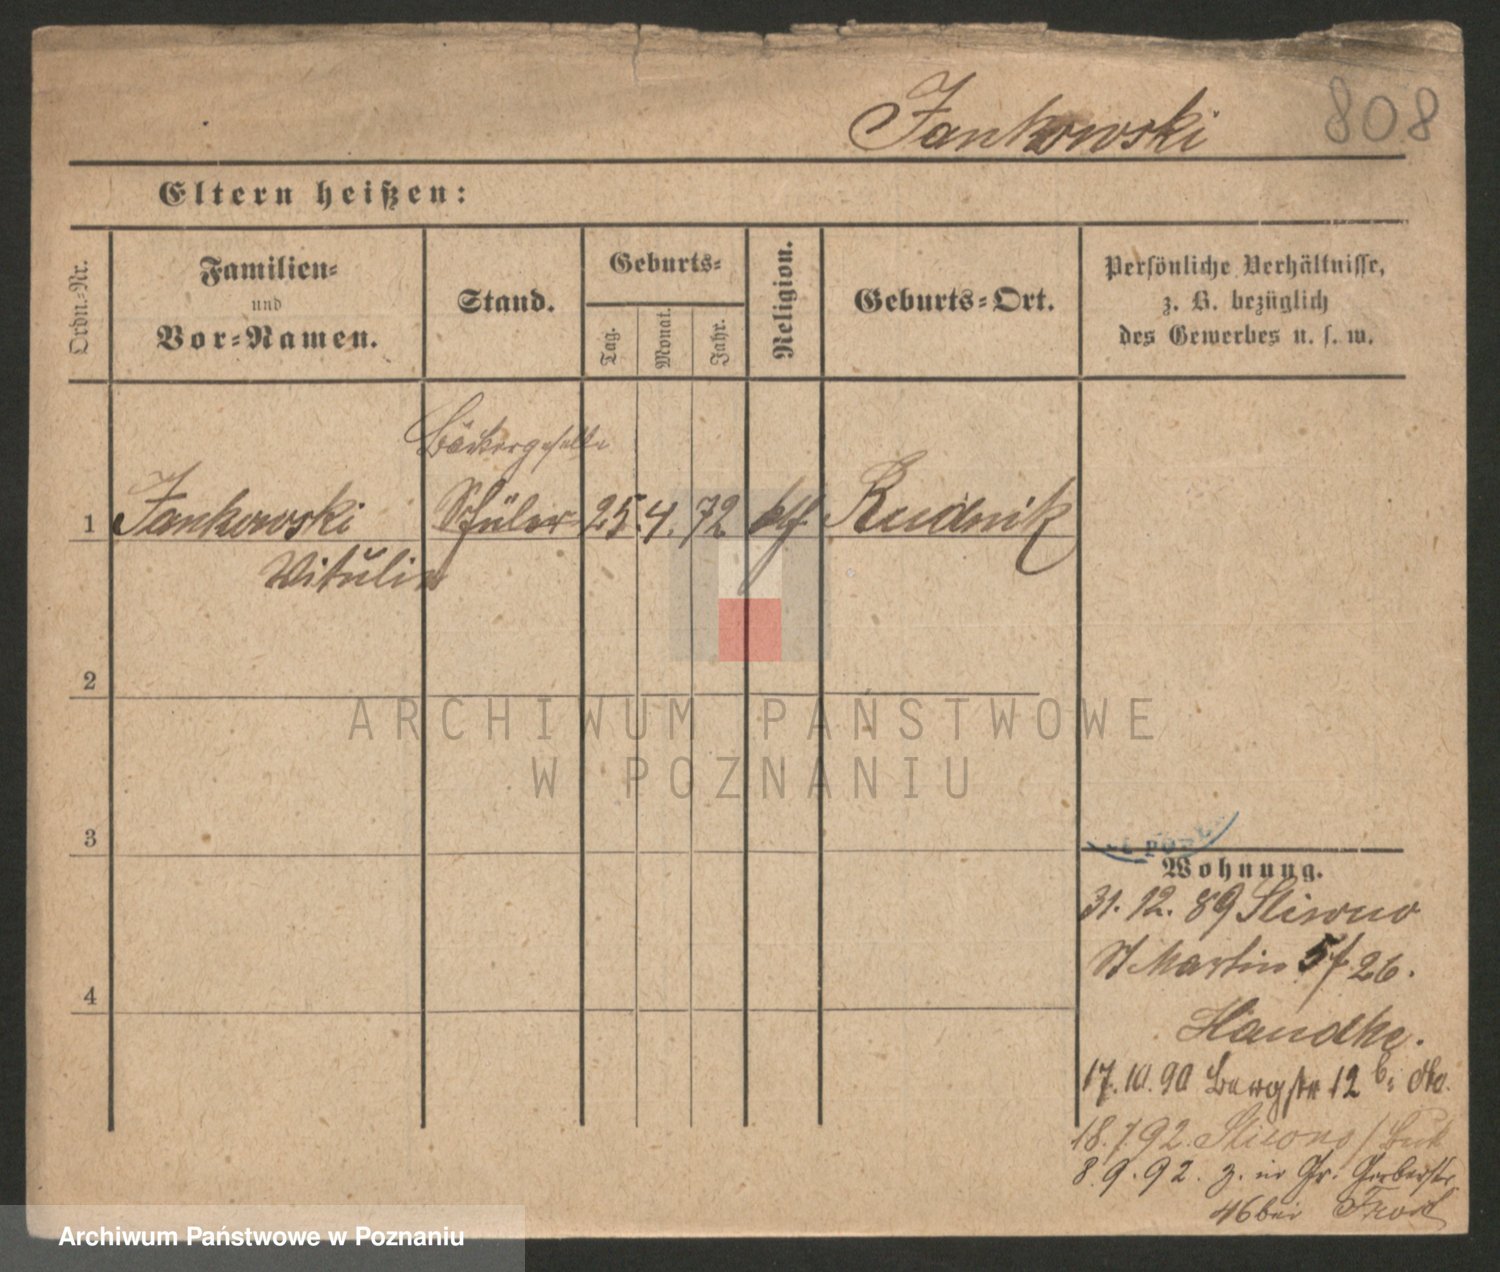 Jankowski 808
Eltern heißen:
Ordn.-Nr.
Familien-
und
Vor-Namen.
Stand.
Geburts-
Tag.
Monat.
Jahr.
Religion.
Geburts-Ort.
Persönliche Verhältnisse,
z. B. bezüglich
des Gewerbes u. s. w.
Bäckergeselle
1 Jankowski Schüler 25. 4. 72 kth Rudnik
Vitulin
2
ARCHIWUM PAŃSTWOWE
W POZNANIU
3
Wohnung.
31. 12. 89 Sliwno
St Martin 26.
4
Handke.
17. 10. 90 Bergstr 12 b.
18. 7 92. Sliwno / Buk
8. 9. 92. z. in Gr. Gerberstr.
46 bei
Archiwum Państwowe w Poznaniu